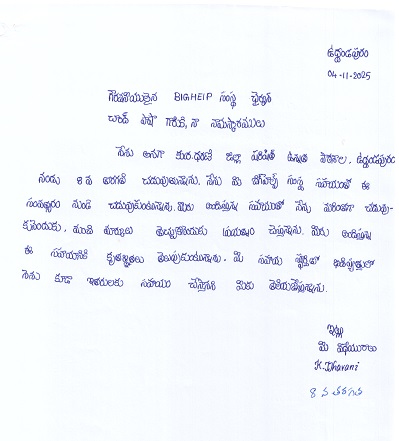 ఉద్దండపురం
04-11-2025
గౌరవనీయులైన BIGHELP సంస్థ ఛైర్మన్
చాంద్ పాషా గారికి, నా నమస్కారములు
నేను అనగా కూర.ధరణి జిల్లా పరిషత్ ఉన్నత పాఠశాల, ఉద్దండపురం
నందు 8 వ తరగతి చదువుతున్నాను. నేను మీ బిగ్‌హెల్ప్ సంస్థ సహాయంతో ఈ
సంవత్సరం నుండి చదువుకుంటున్నాను. మీరు అందిస్తున్న సహాయంతో నేను మరింతగా చదువు-
కునేందుకు, మంచి మార్కులు తెచ్చుకొనుటకు ప్రయత్నం చేస్తాను. మీరు అందిస్తున్న
ఈ సహాయానికి కృతజ్ఞతలు తెలుపుకుంటున్నాను. మీ సహాయ స్ఫూర్తితో భవిష్యత్తులో
నేను కూడా ఇతరులకు సహాయం చేస్తానని మీకు తెలియజేస్తున్నాను.
ఇట్లు
మీ విధేయురాలు
K.Dharani
8 వ తరగతి